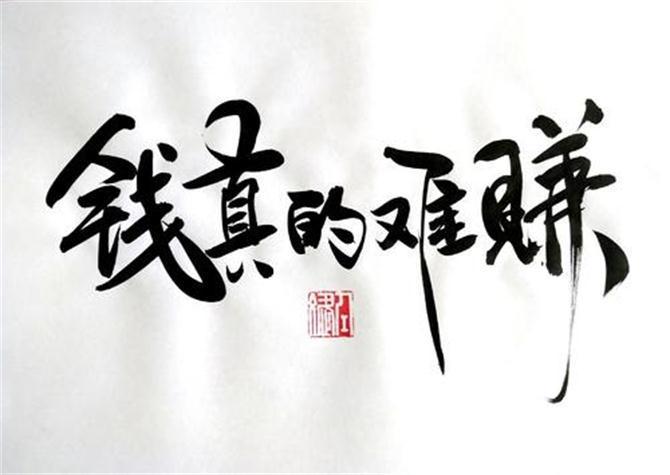 钱真的难赚